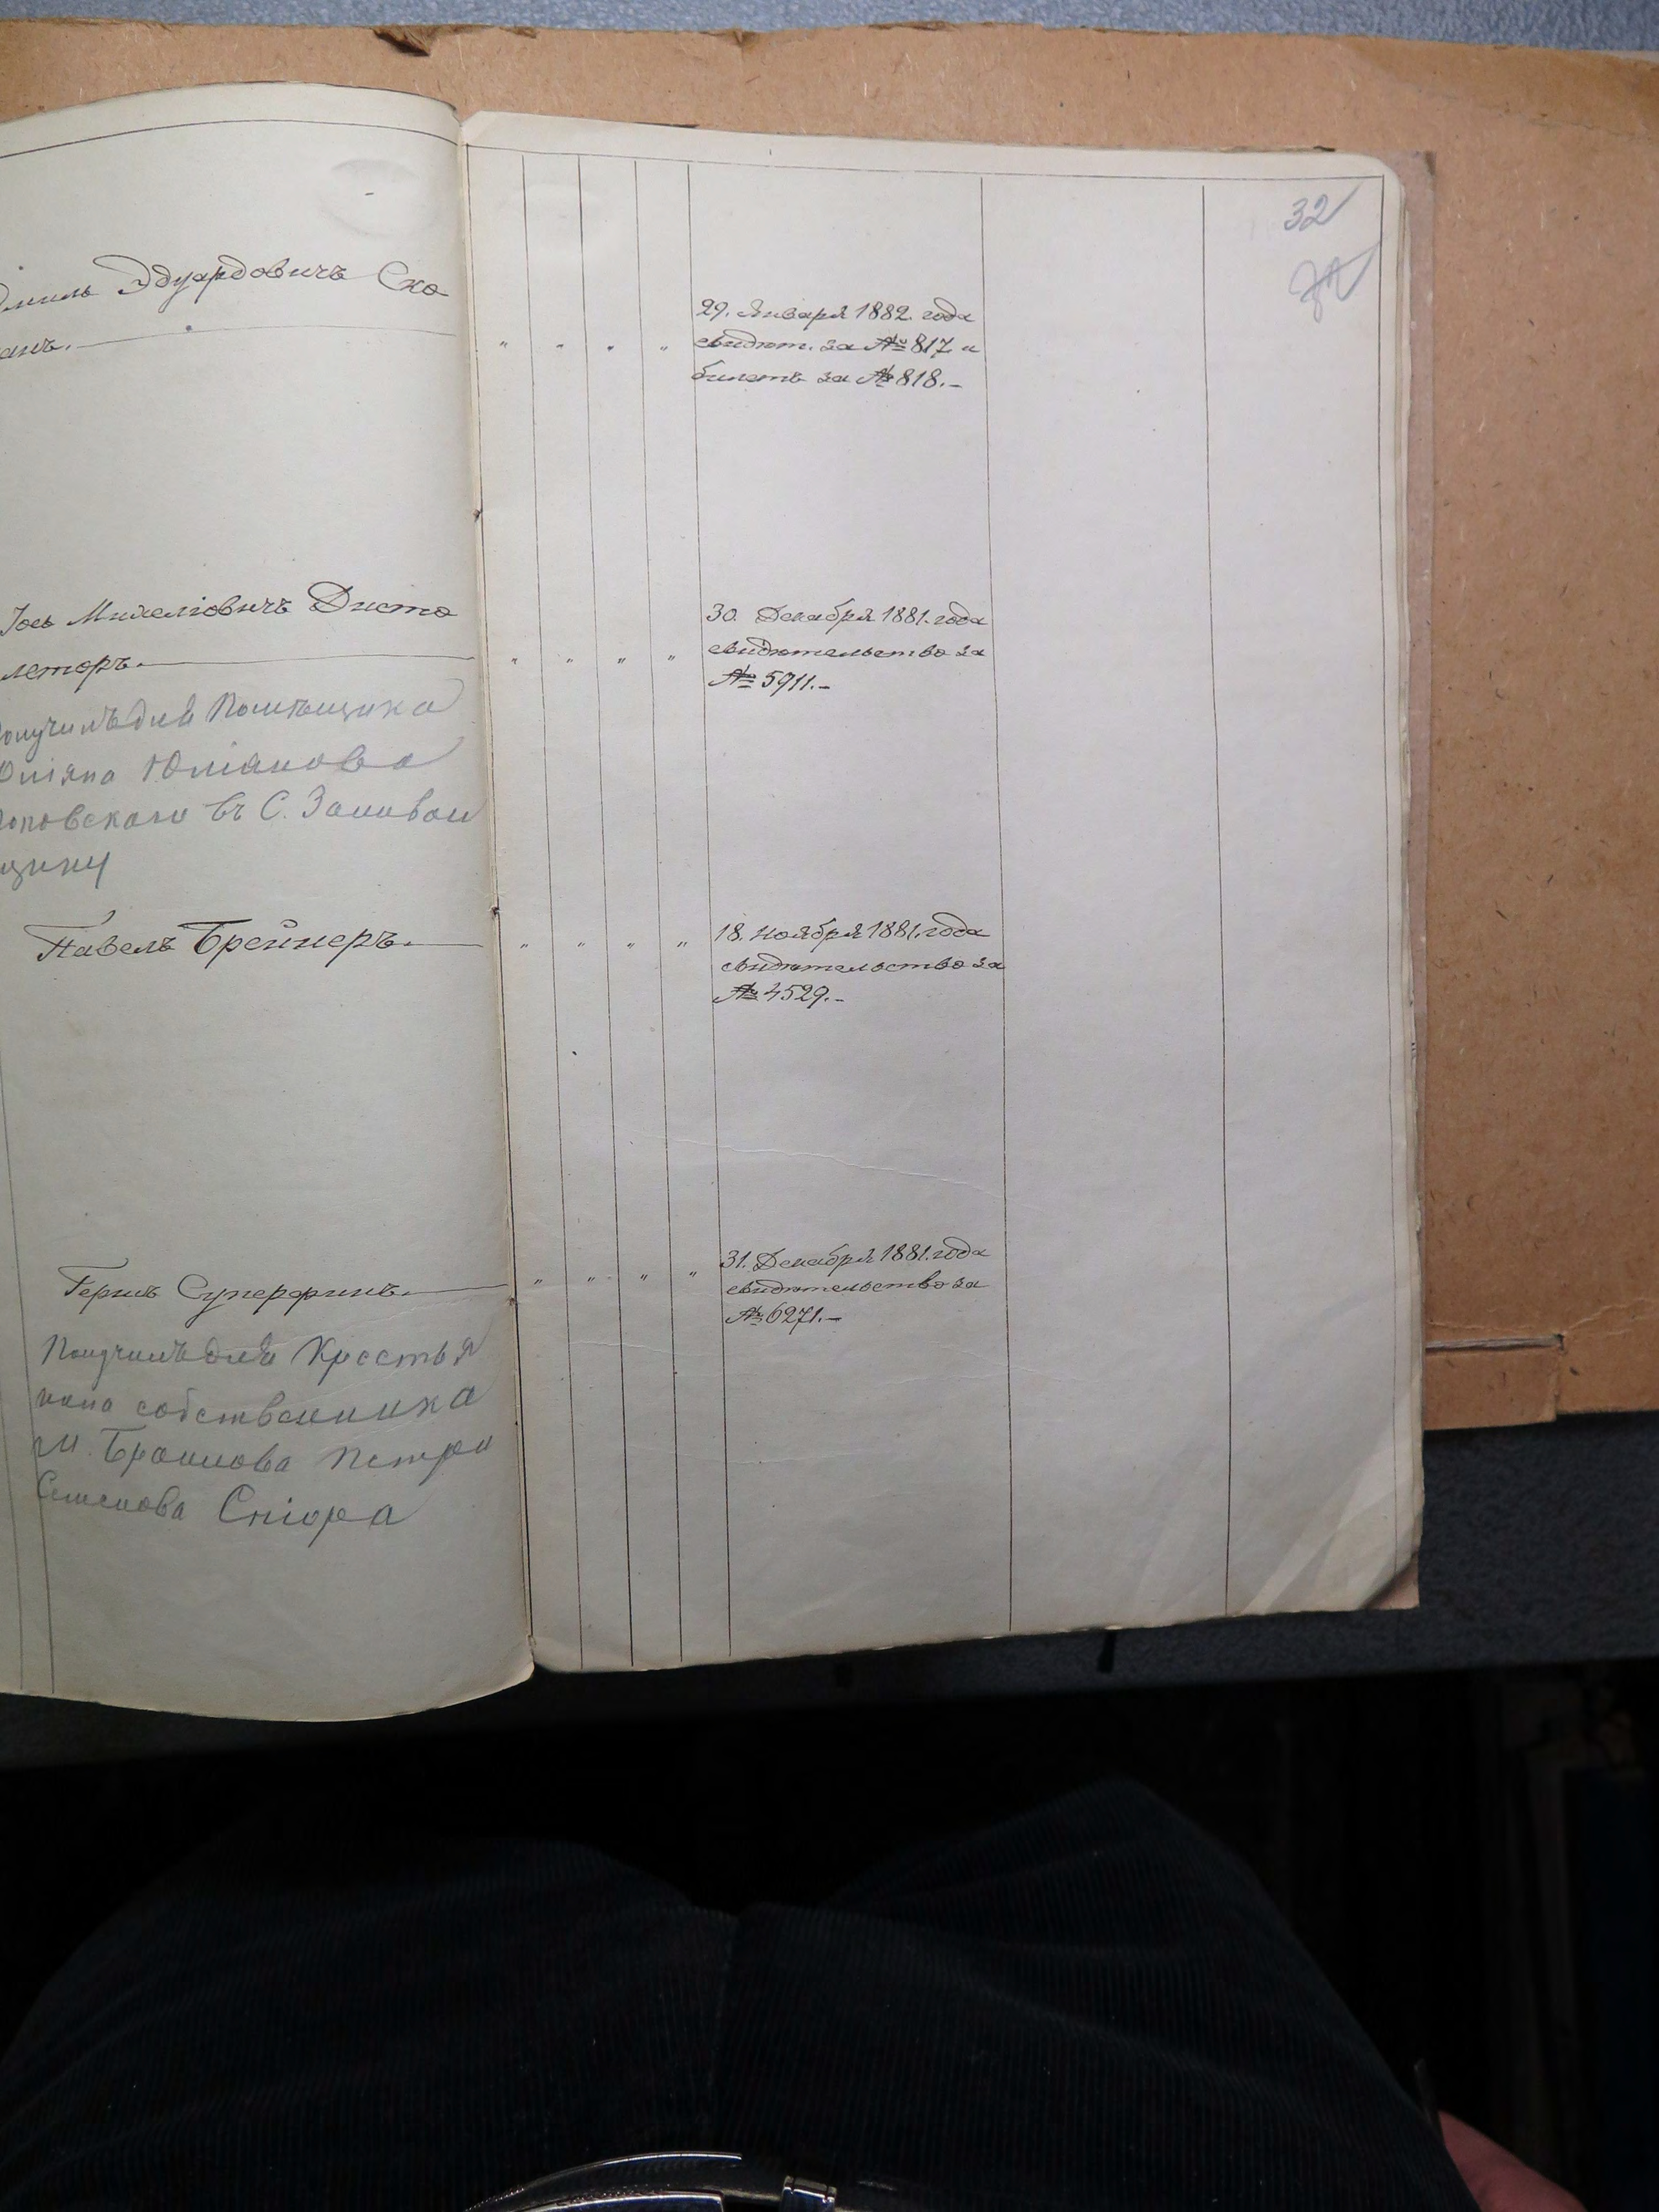 32
Эдуардовичъ Ско
анъ.
" " " "
29. Января 1882. года
свидѣт. за № 817. и
билетъ за № 818.-
Іось Михелiовичъ Дисто
леторъ.
" " " "
30. Декабря 1881. года
свидѣтельство за
№ 5911.-
получилъ для Помѣщика
Юліана
въ С.
щину
Павелъ Брейнеръ.
" " " "
18. Ноября 1881. года
свидѣтельство за
№ 4529.-
Герша Суперфинъ.
" " " "
31. Декабря 1881. года
свидѣтельство за
№ 6271.-
Получилъ для Крестья
нина собственника
м. Браилова Петра
Семенова Спіора